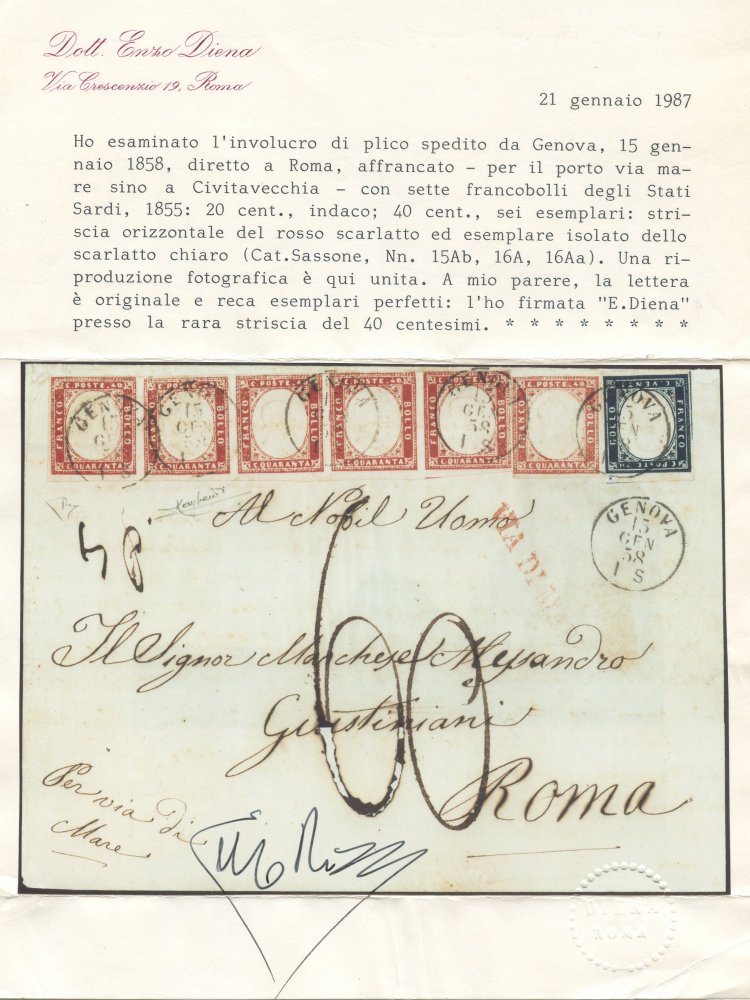 Dott. Enzo Diena
Via Crescenzio 19, Roma
21 gennaio 1987
Ho esaminato l'involucro di plico spedito da Genova, 15 gen-
naio 1858, diretto a Roma, affrancato - per il porto via ma-
re sino a Civitavecchia - con sette francobolli degli Stati
Sardi, 1855: 20 cent., indaco; 40 cent., sei esemplari: stri-
scia orizzontale del rosso scarlatto ed esemplare isolato dello
scarlatto chiaro (Cat.Sassone, Nn. 15Ab, 16A, 16Aa). Una ri-
produzione fotografica è qui unita. A mio parere, la lettera
è originale e reca esemplari perfetti: l'ho firmata "E.Diena"
presso la rara striscia del 40 centesimi. * * * * * * * *
C. POSTE. 40 C. POSTE. 40 C. POSTE. 40 C. POSTE. 40 C. POSTE. 40
FRANCO BOLLO FRANCO BOLLO FRANCO BOLLO FRANCO BOLLO FRANCO BOLLO FRANCO BOLLO BOLLO FRANCO
C. QUARANTA C. QUARANTA C. QUARANTA C. QUARANTA C. QUARANTA C. QUARANTA
GENOVA 15 GEN 58 1 S
Al Nobil Uomo
VIA DI
GENOVA
15
GEN
58
1 S
60
Il Signor Marchese Alessandro
Giustiniani
Roma
Per via di
Mare
DIENA
ROMA